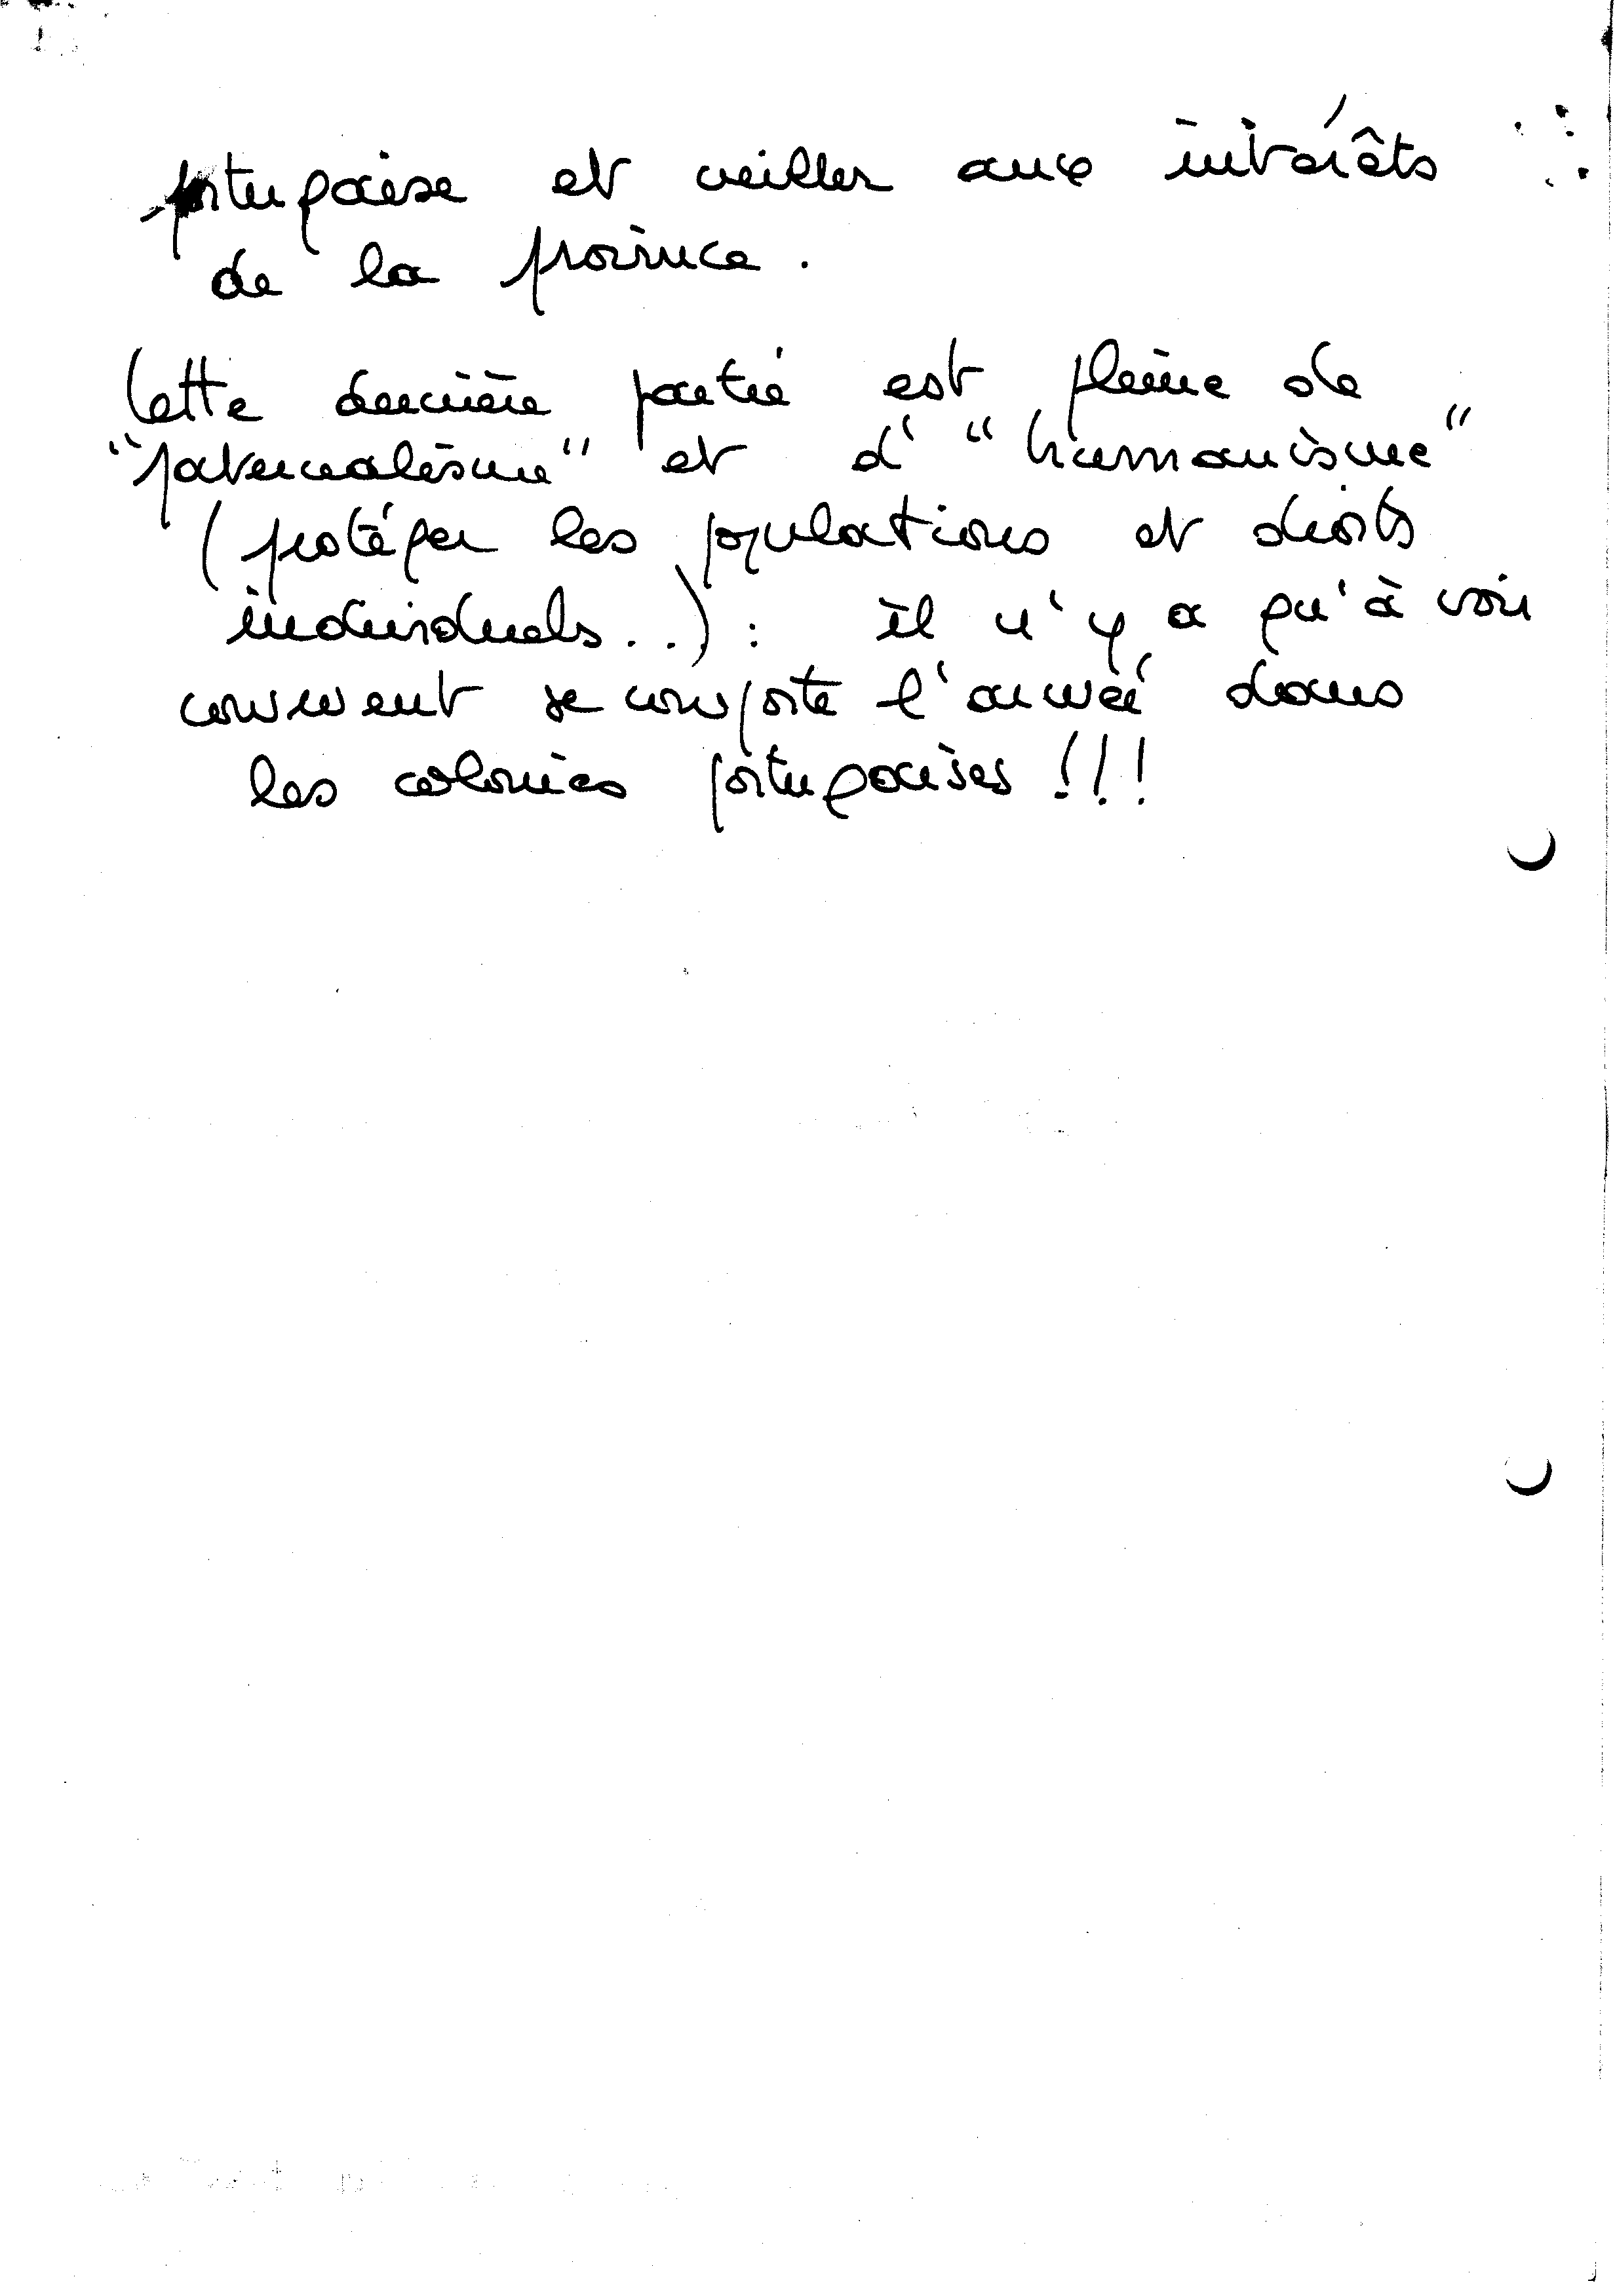 portugaise et veiller aux intérêts
de la province.
Cette dernière partie est pleine de
"paternalisme" et d' "humanisme"
(protéger les populations et droits
individuels...) : il n'y a qu'à voir
comment se comporte l'armée dans
les colonies portugaises !!!